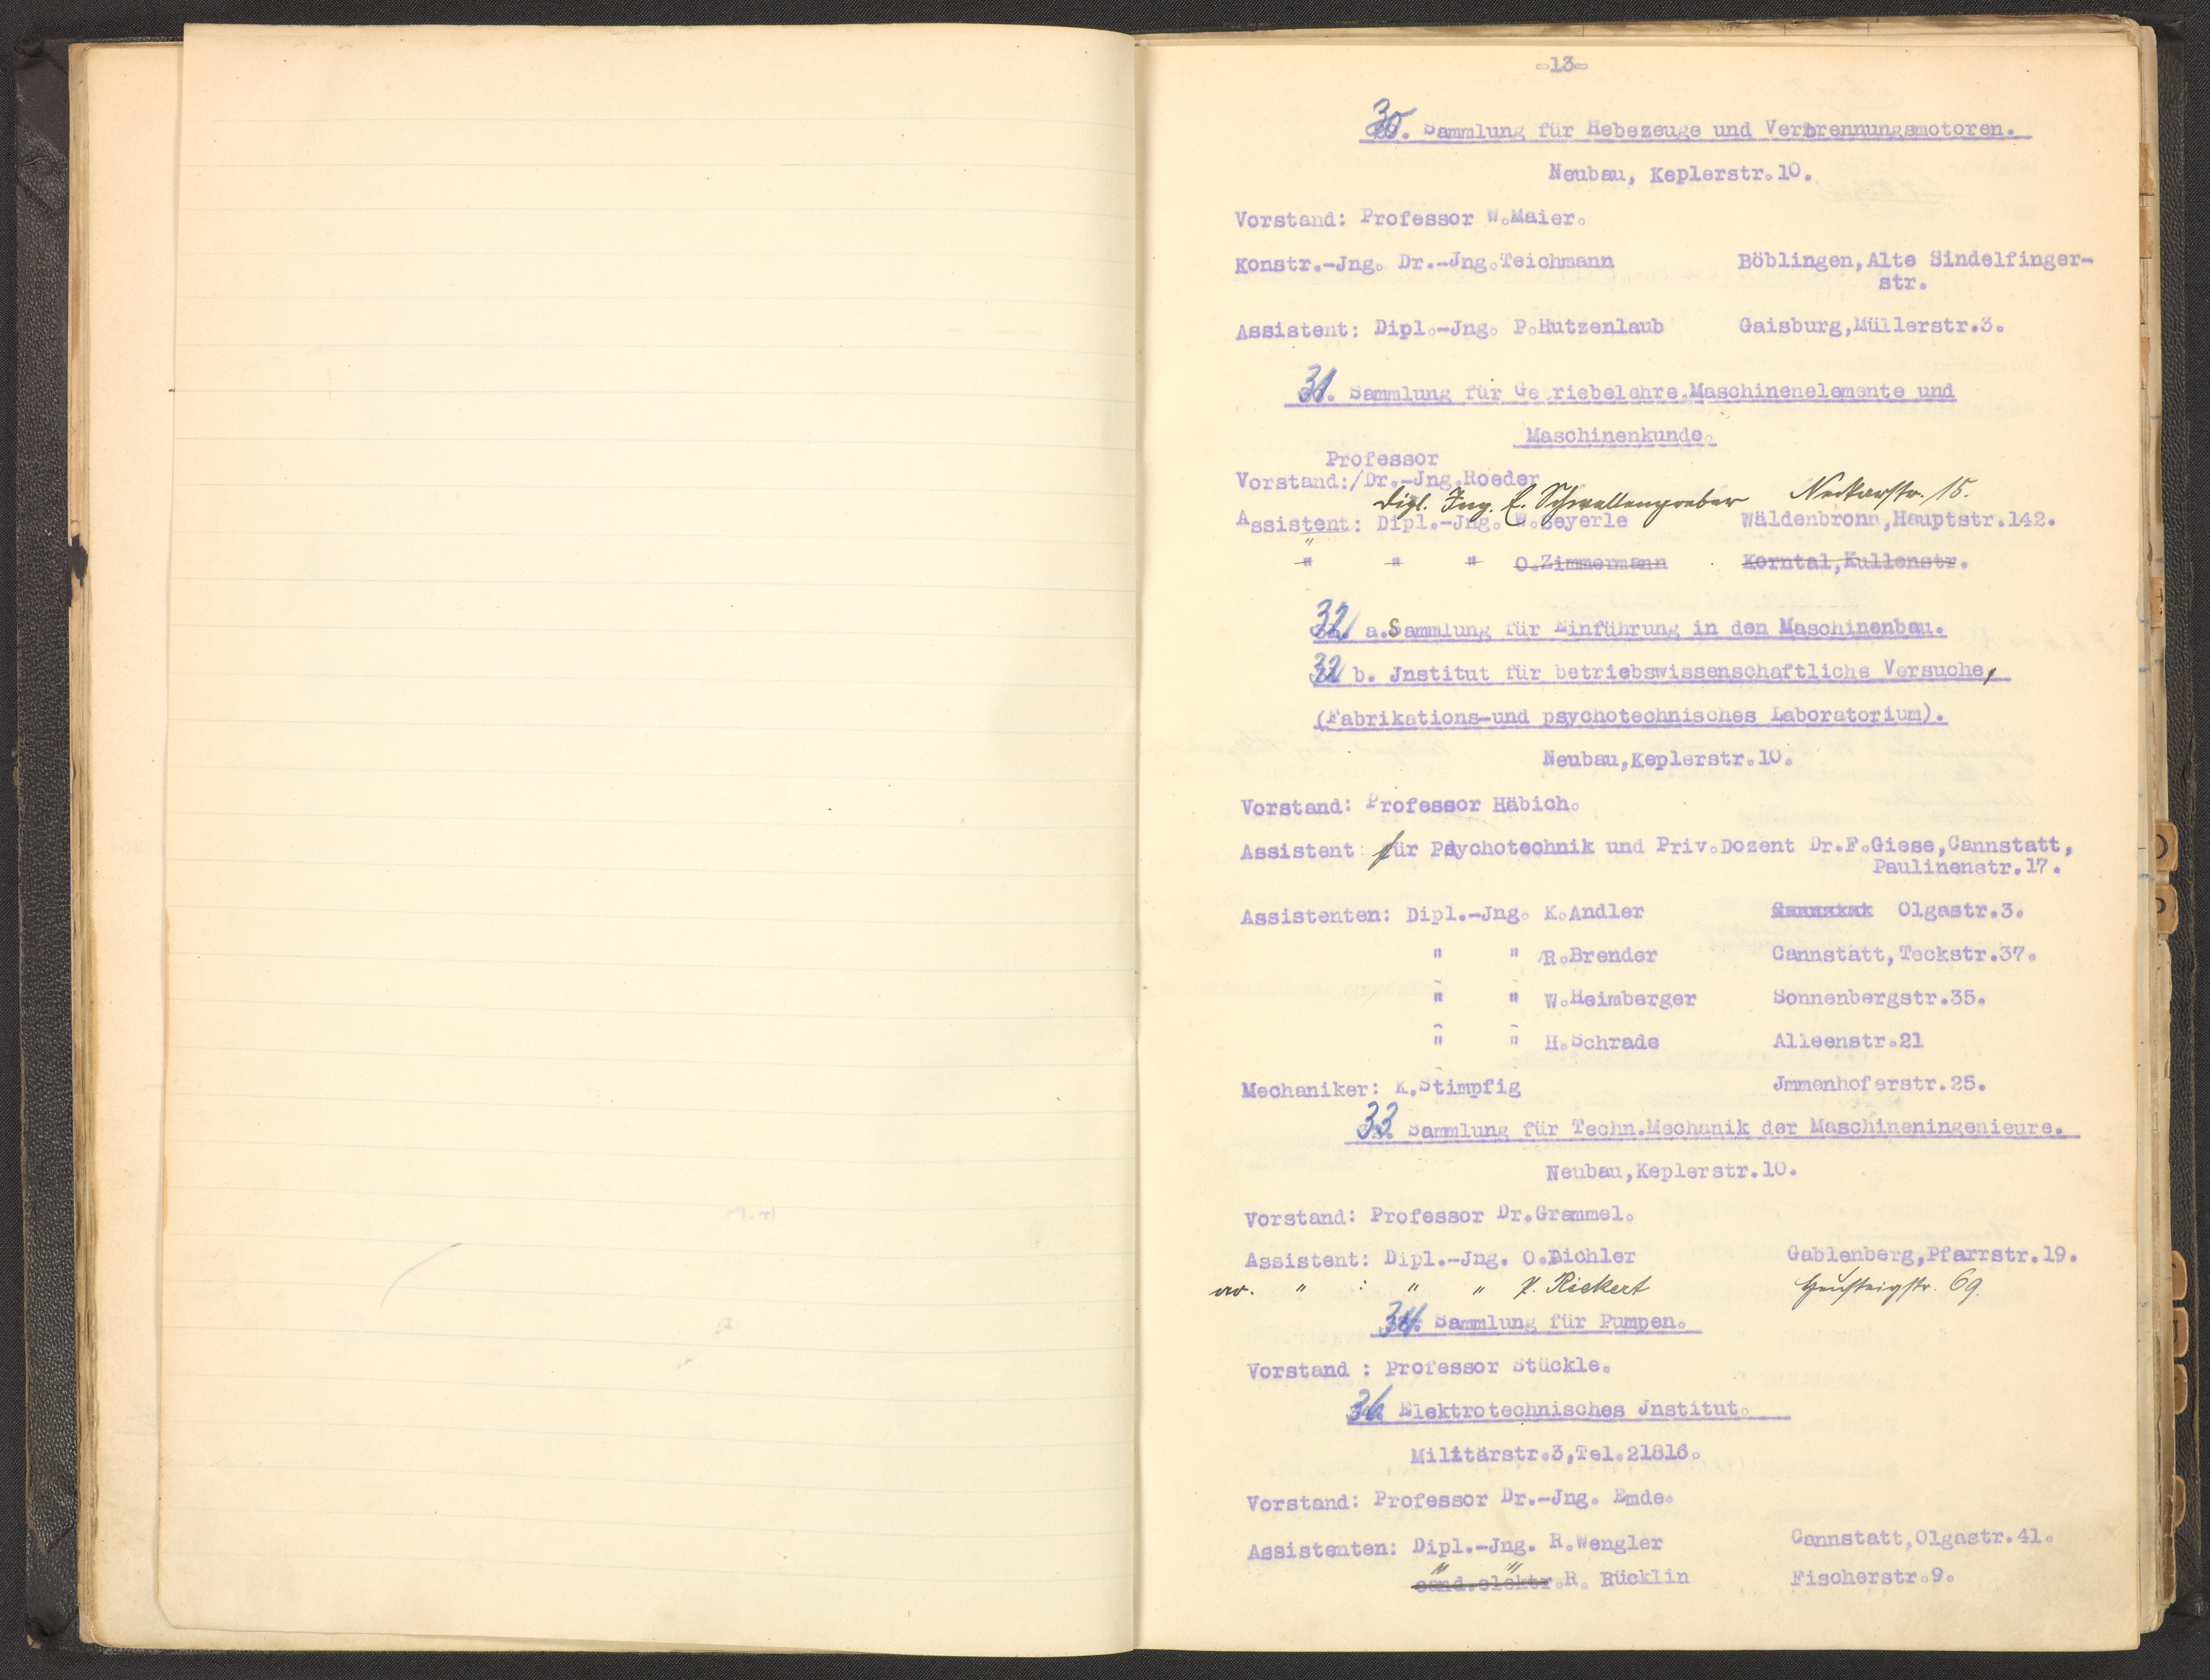 -13-
30. Sammlung für Hebezeuge und Verbrennungsmotoren.
Neubau, Keplerstr.10.
Vorstand: Professor W.Maier.
Konstr.-Jng. Dr.-Jng.Teichmann Böblingen,Alte Sindelfinger-
str.
Assistent: Dipl.-Jng. P.Hutzenlaub Gaisburg,Müllerstr.3.
31. Sammlung für Getriebelehre.Maschinenelemente und
Maschinenkunde.
Professor
Vorstand:/Dr.-Jng.Roeder
Dipl. Ing. E. Schwaltengraber Neckarstr. 15.
Assistent: Dipl.-Jng. W.Beyerle Wäldenbronn,Hauptstr.142.
" " " O.Zimmermann Korntal,Kullenstr.
32 a.Sammlung für Einführung in den Maschinenbau.
32 b. Jnstitut für betriebswissenschaftliche Versuche,
(Fabrikations-und psychotechnisches Laboratorium).
Neubau,Keplerstr.10.
Vorstand: Professor Häbich.
Assistent für Psychotechnik und Priv.Dozent Dr.F.Giese,Cannstatt,
Paulinenstr.17.
Assistenten: Dipl.-Jng. K.Andler Olgastr.3.
" " R.Brender Cannstatt,Teckstr.37.
" " W.Heimberger Sonnenbergstr.35.
" " H.Schrade Alleenstr.21
Mechaniker: K.Stimpfig Jmmenhoferstr.25.
33. Sammlung für Techn.Mechanik der Maschineningenieure.
Neubau,Keplerstr.10.
Vorstand: Professor Dr.Grammel.
Assistent: Dipl.-Jng. O.Eichler Gablenberg,Pfarrstr.19.
ao. " : " " P. Riekert Heusteigstr. 69.
34. Sammlung für Pumpen.
Vorstand : Professor Stückle.
36. Elektrotechnisches Jnstitut.
Militärstr.3,Tel.21816.
Vorstand: Professor Dr.-Jng. Emde.
Assistenten: Dipl.-Jng. R.Wengler Cannstatt,Olgastr.41.
" " cand.elektr.R. Rücklin Fischerstr.9.